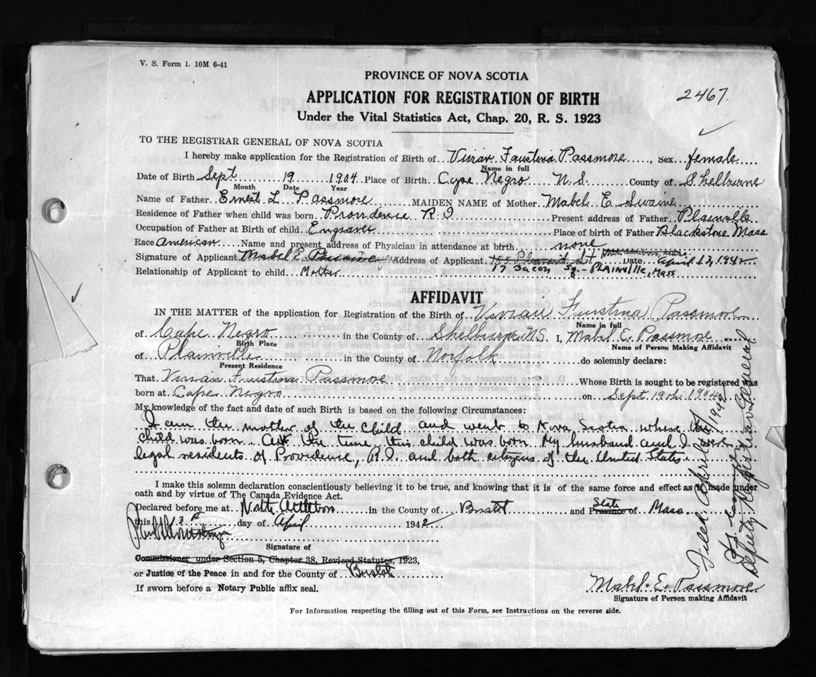 V. S. Form 1. 10M 6-41
PROVINCE OF NOVA SCOTIA
APPLICATION FOR REGISTRATION OF BIRTH
2467
Under the Vital Statistics Act, Chap. 20, R. S. 1923
TO THE REGISTRAR GENERAL OF NOVA SCOTIA
I hereby make application for the Registration of Birth of Vivian Faustina Passmore, Sex female
Name in full
Date of Birth Sept 19 1904 Place of Birth Cape Negro N.S. County of Shelburne
Month Date Year
Name of Father Ernest L. Passmore MAIDEN NAME of Mother Mabel E. Swaine
Residence of Father when child was born Providence R.I Present address of Father Plainville
Occupation of Father at Birth of child Engraver Place of birth of Father Blackstone Mass
Race American Name and present address of Physician in attendance at birth none
Signature of Applicant Mabel E. Passmore Address of Applicant Date April 12, 1942
Relationship of Applicant to child Mother 17 Bacon Sq. - Plainville, Mass.
AFFIDAVIT
IN THE MATTER of the application for Registration of the Birth of Vivian Faustina Passmore
Name in full
of Cape Negro in the County of Shelburne N.S. I, Mabel E. Passmore
Birth Place Name of Person Making Affidavit
of Plainville in the County of Norfolk do solemnly declare:
Present Residence
That Vivian Faustina Passmore Whose Birth is sought to be registered was
born at Cape Negro on Sept. 19th 1904
My knowledge of the fact and date of such Birth is based on the following Circumstances:
I am the mother of the child and went to Nova Scotia where the
child was born. At the time this child was born my husband and I were
legal residents of Providence, R.I. and both citizens of the United States.
I make this solemn declaration conscientiously believing it to be true, and knowing that it is of the same force and effect as if made under
oath and by virtue of The Canada Evidence Act.
Declared before me at North Attleboro in the County of Bristol and State Province of Mass.
this day of April 1942
Signature of
Commissioner under Section 5, Chapter 38, Revised Statutes, 1923,
or Justice of the Peace in and for the County of Bristol
If sworn before a Notary Public affix seal.
Mabel E. Passmore
Signature of Person making Affidavit
For Information respecting the filling out of this Form, see Instructions on the reverse side.
Filed April 1942
Deputy Registrar General